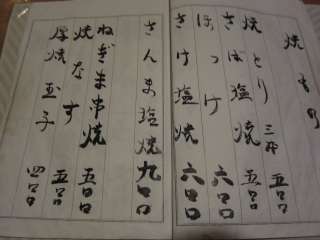 焼もの
焼とり 三本 五〇〇
さば塩焼 五〇〇
ほっけ 六〇〇
さけ塩焼 六〇〇
さんま塩焼 九〇〇
ねぎま串焼 五〇〇
焼なす 五〇〇
厚焼玉子 四〇〇